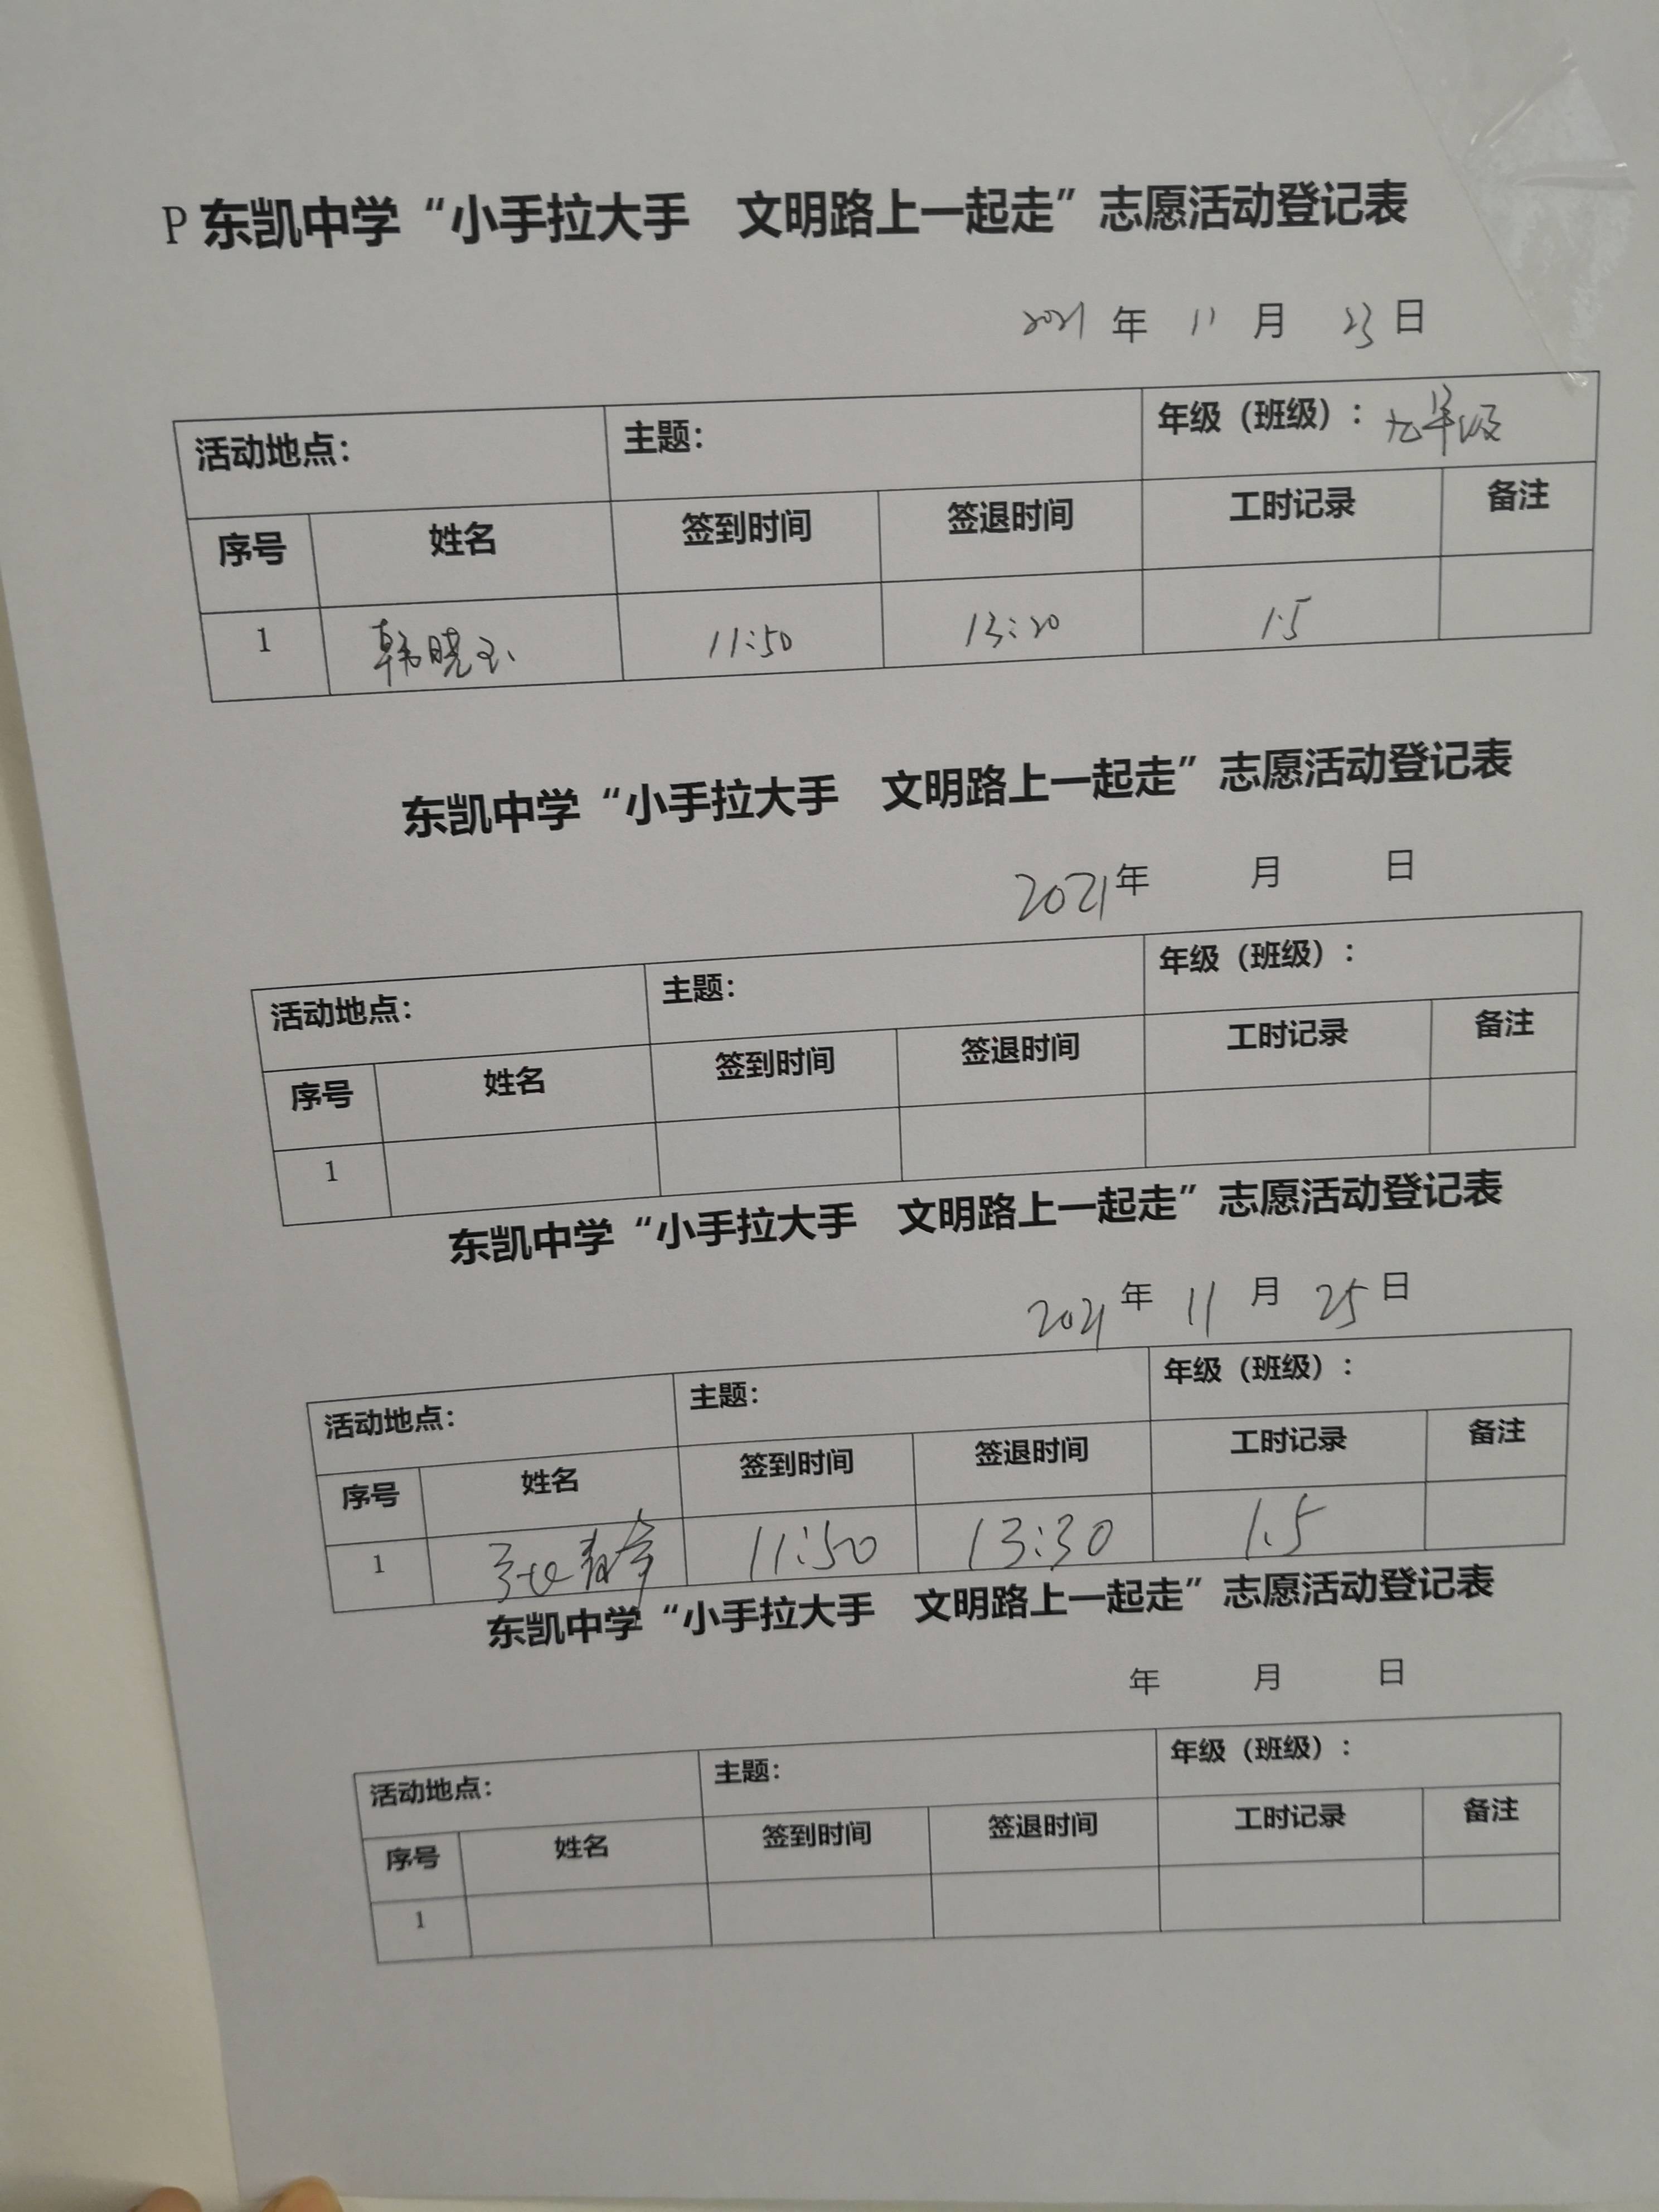 P 东凯中学“小手拉大手 文明路上一起走”志愿活动登记表
2021 年 11 月 23 日
活动地点： 主题： 年级（班级）：九年级
序号 姓名 签到时间 签退时间 工时记录 备注
1 韩晓玉 11:50 13:20 1.5
东凯中学“小手拉大手 文明路上一起走”志愿活动登记表
2021年 月 日
活动地点： 主题： 年级（班级）：
序号 姓名 签到时间 签退时间 工时记录 备注
1
东凯中学“小手拉大手 文明路上一起走”志愿活动登记表
2021 年 11 月 25 日
活动地点： 主题： 年级（班级）：
序号 姓名 签到时间 签退时间 工时记录 备注
1 11:50 13:30 1.5
东凯中学“小手拉大手 文明路上一起走”志愿活动登记表
年 月 日
活动地点： 主题： 年级（班级）：
序号 姓名 签到时间 签退时间 工时记录 备注
1